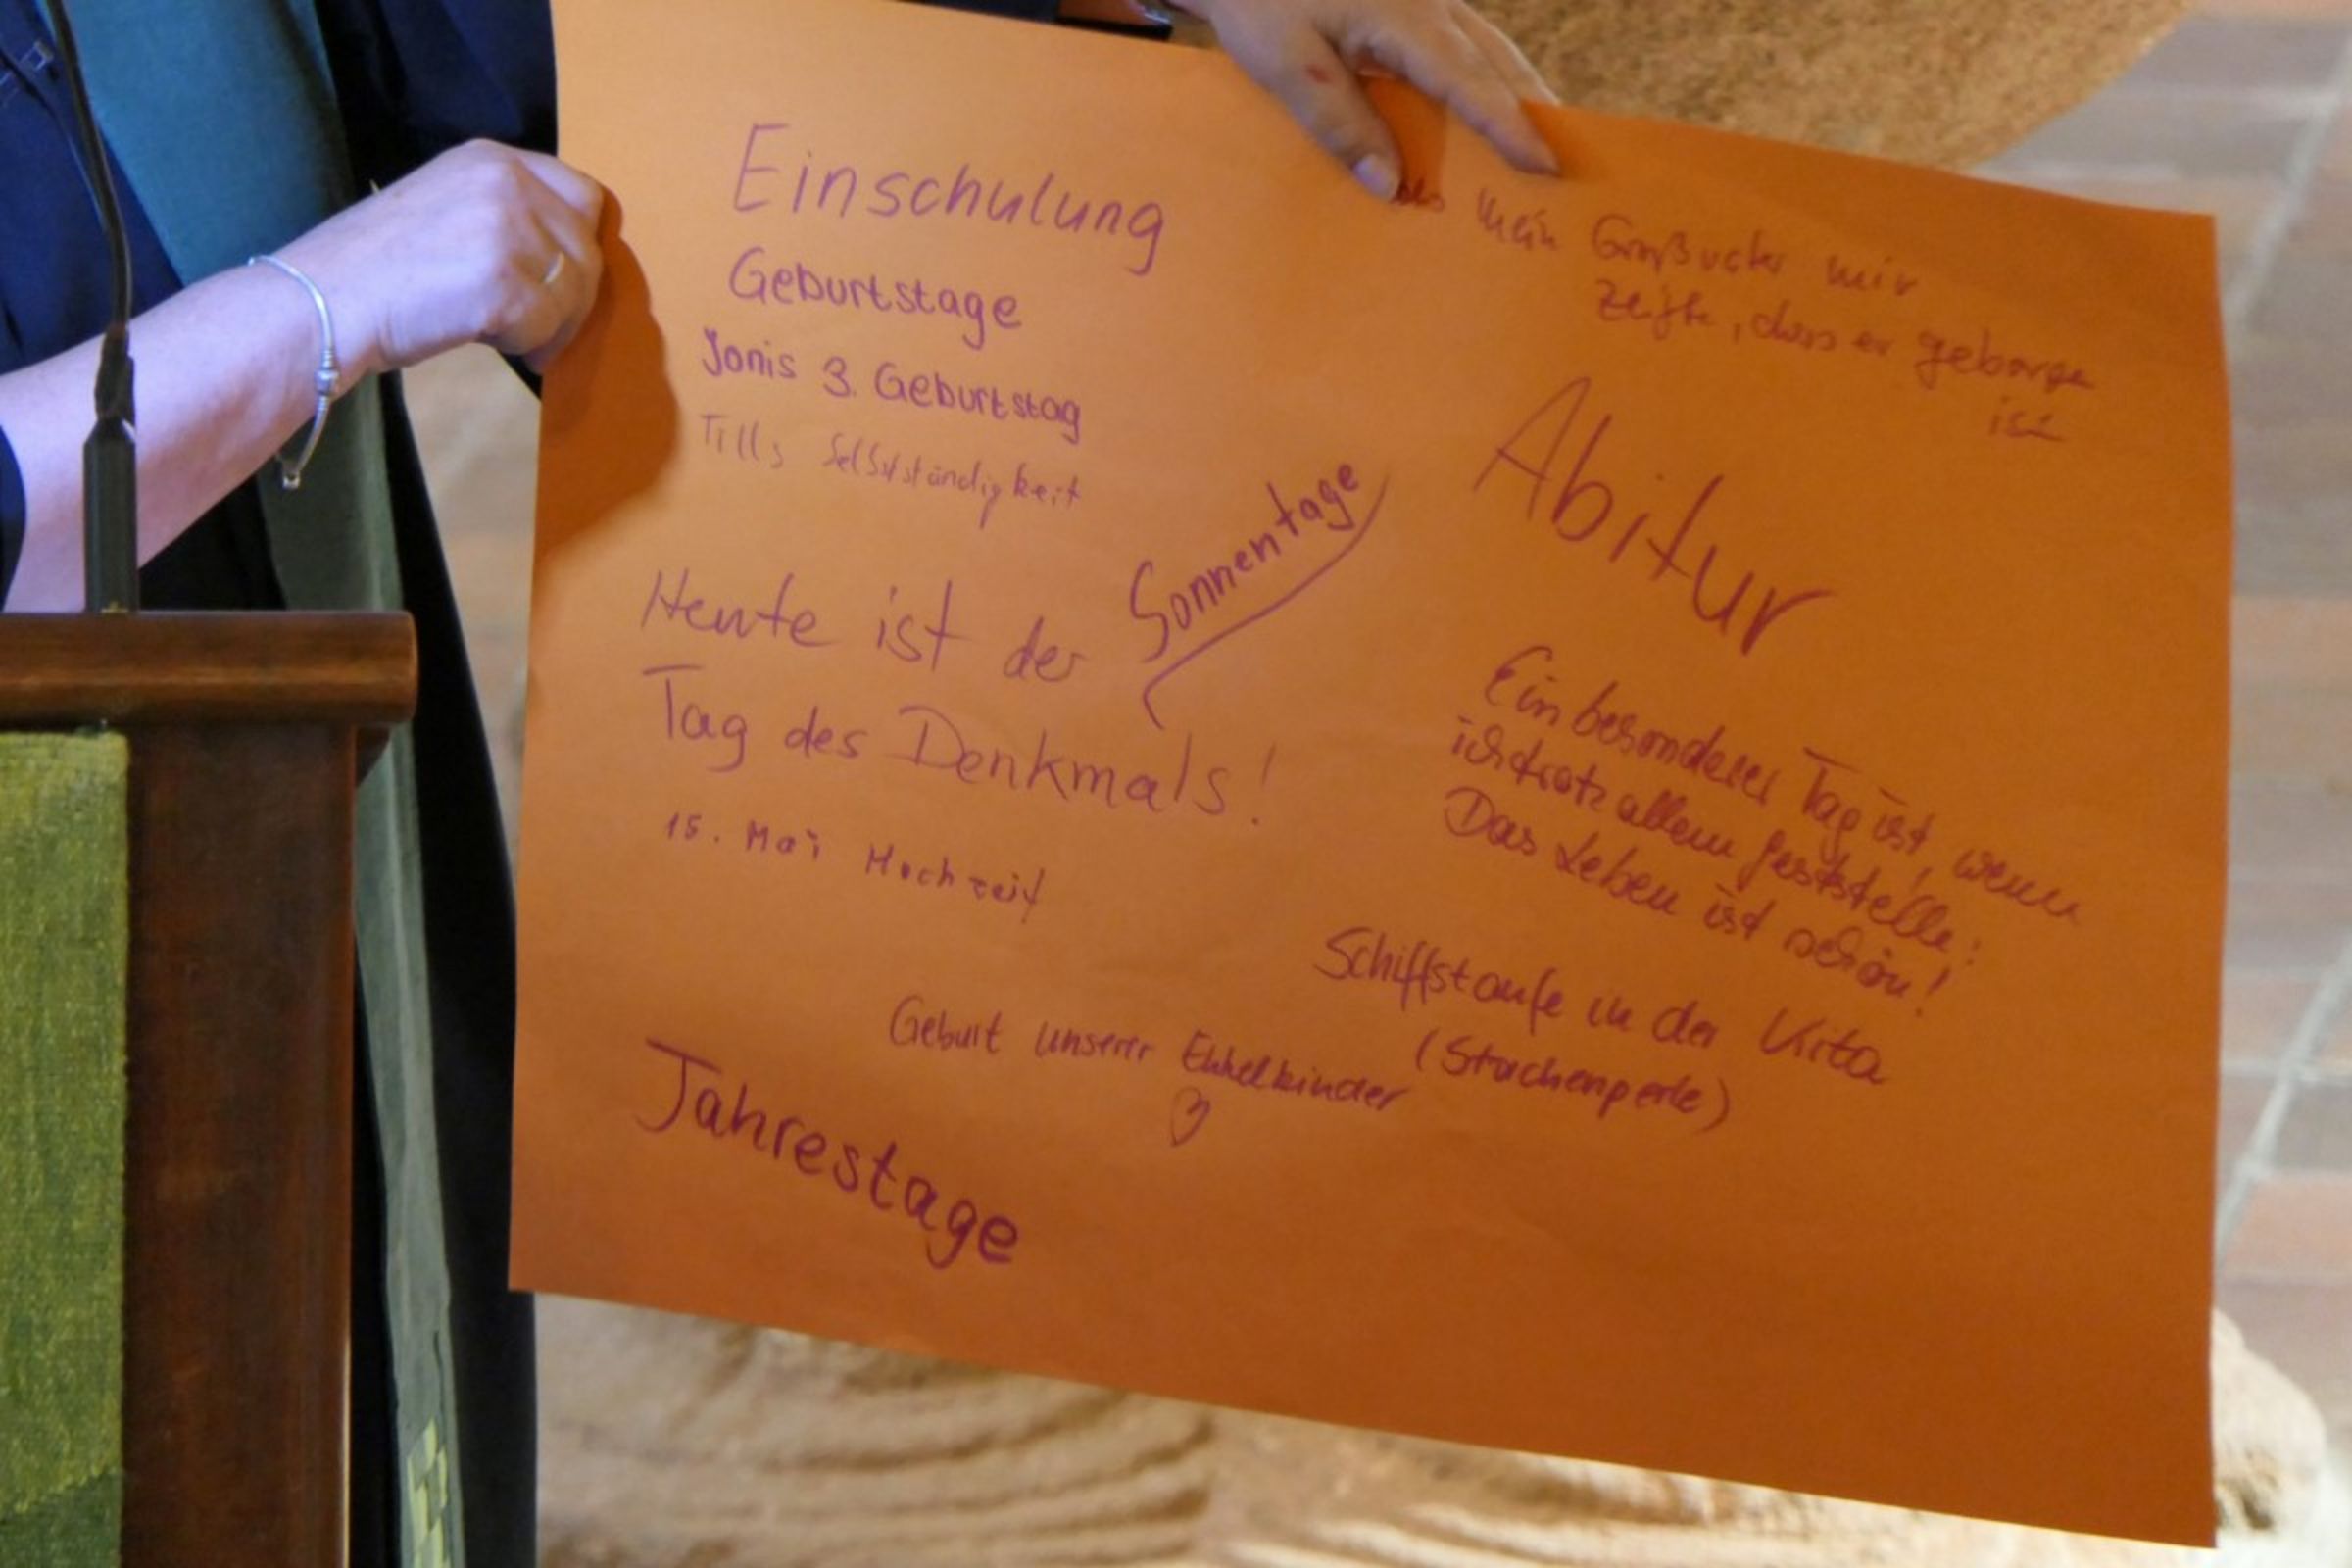 Einschulung
Geburtstage
Jonis 3. Geburtstag
Tills Selbstständigkeit
Sonnentage
Heute ist der
Tag des Denkmals!
15. Mai Hochzeit
Geburt unserer Enkelkinder
Jahrestage
Als mein Großvater mir
zeigte, dass er geborgen
ist
Abitur
Ein besonderer Tag ist, wenn
ich trotz allem feststelle:
Das Leben ist schön!
Schiffstaufe in der Kita
(Stachenperle)